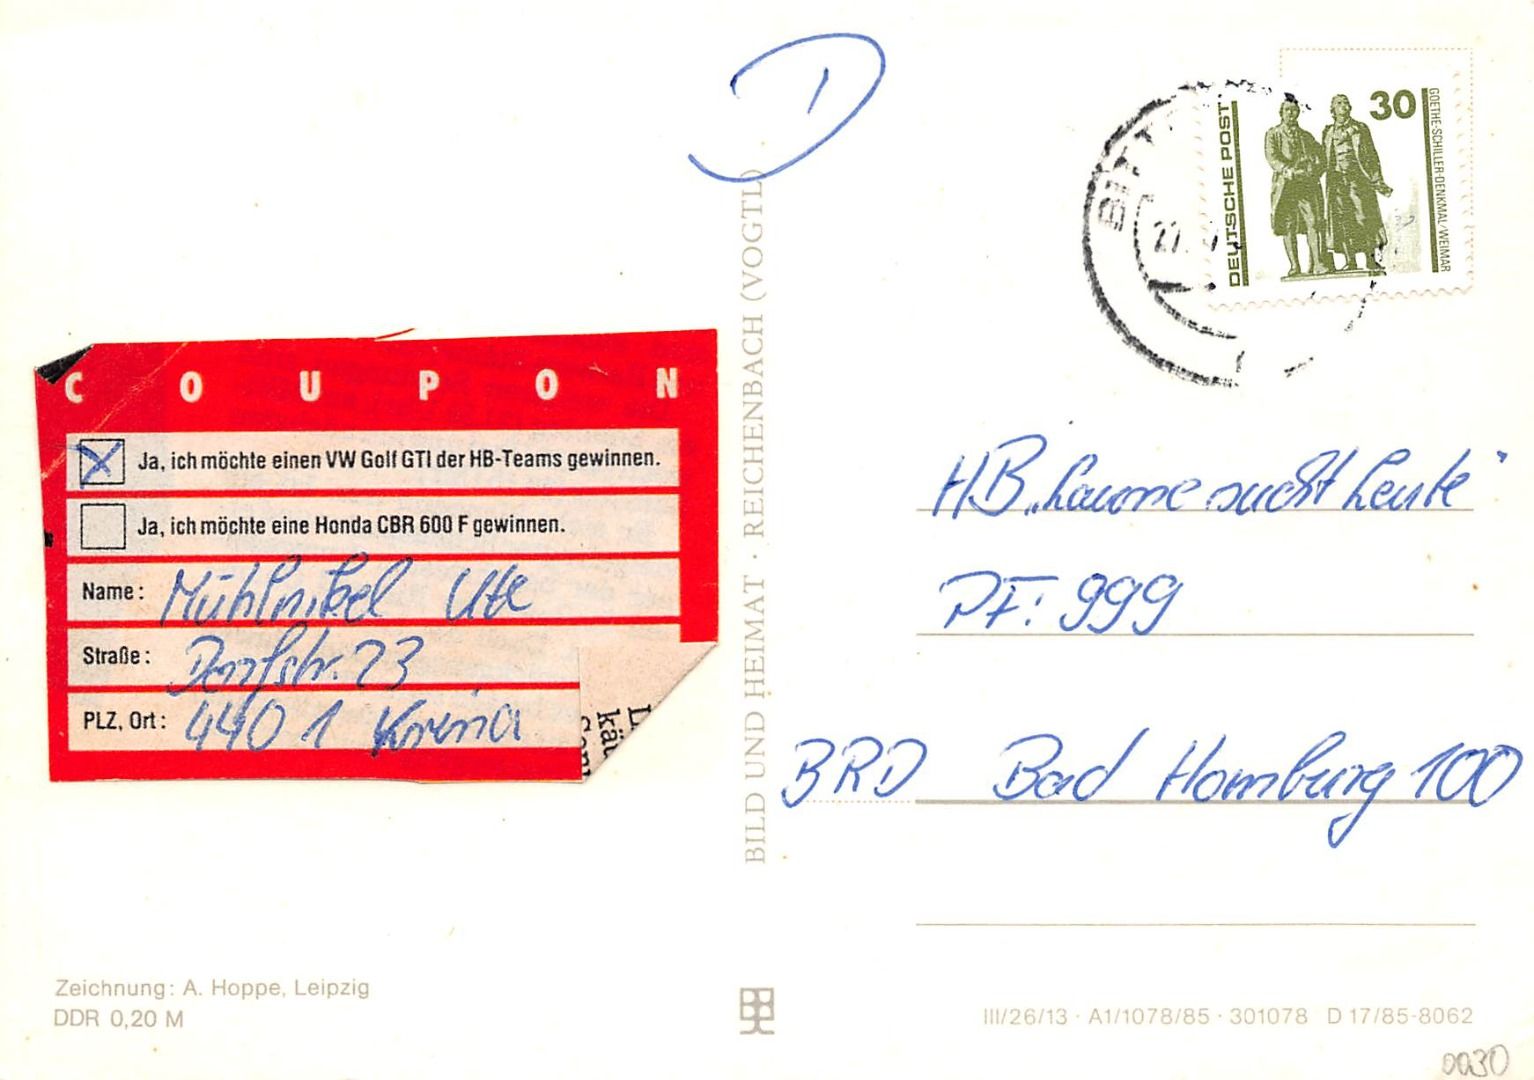 COUPON
Ja, ich möchte einen VW Golf GTI der HB-Teams gewinnen.
Ja, ich möchte eine Honda CBR 600 F gewinnen.
Name: Mühlnikel Ute
Straße: Dorfstr. 23
PLZ, Ort: 4401 Krina
Zeichnung: A. Hoppe, Leipzig
DDR 0,20 M
BILD UND HEIMAT · REICHENBACH (VOGTL)
D
DEUTSCHE POST
30
GOETHE-SCHILLER-DENKMAL/WEIMAR
HB „Laune sucht Leute"
PF: 999
BRD Bad Homburg 100
III/26/13 · A1/1078/85 · 301078 D 17/85-8062
0030